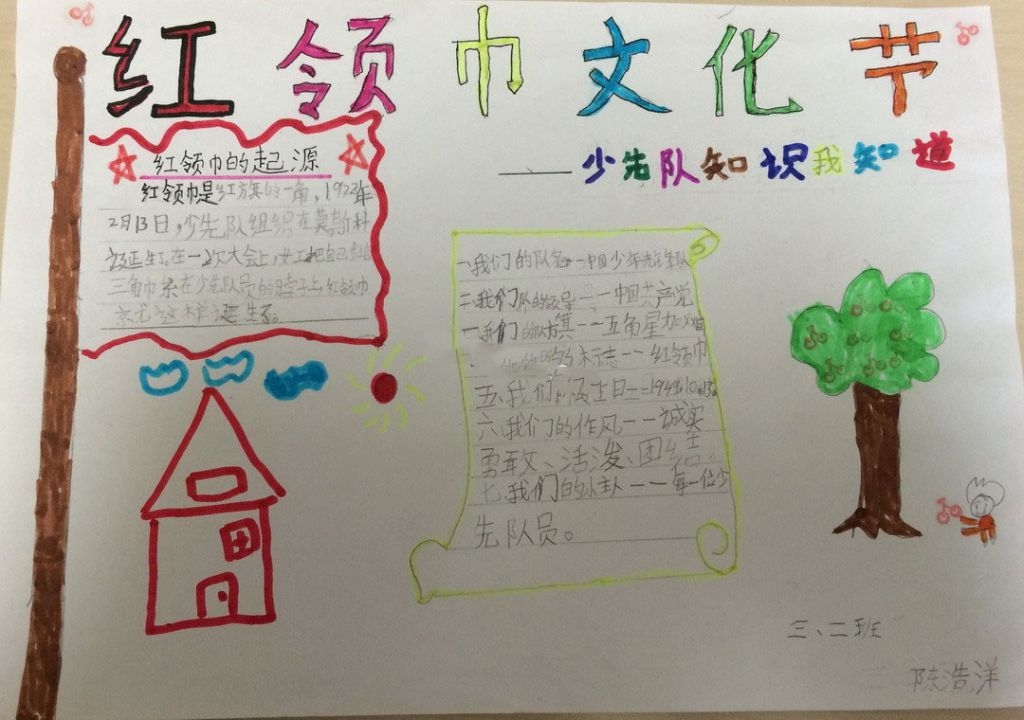 红领巾文化节
——少先队知识我知道
红领巾的起源
红领巾是红方旗的一角，1922年
2月13日，少先队组织在莫斯科
诞生了。在一次大会上，女工把自己
三角巾系在少先队员的脖子上，红领巾
就这样诞生了。
一、我们的队名——中国少年先锋队
二、我们队的领导——中国共产党
我们的队旗——五角星加火炬
的标志——红领巾
五、我们诞生日——1949.10.13
六、我们的作风——诚实
勇敢、活泼、团结。
七、我们的——每一位少
先队员。
三、二班
陈浩洋